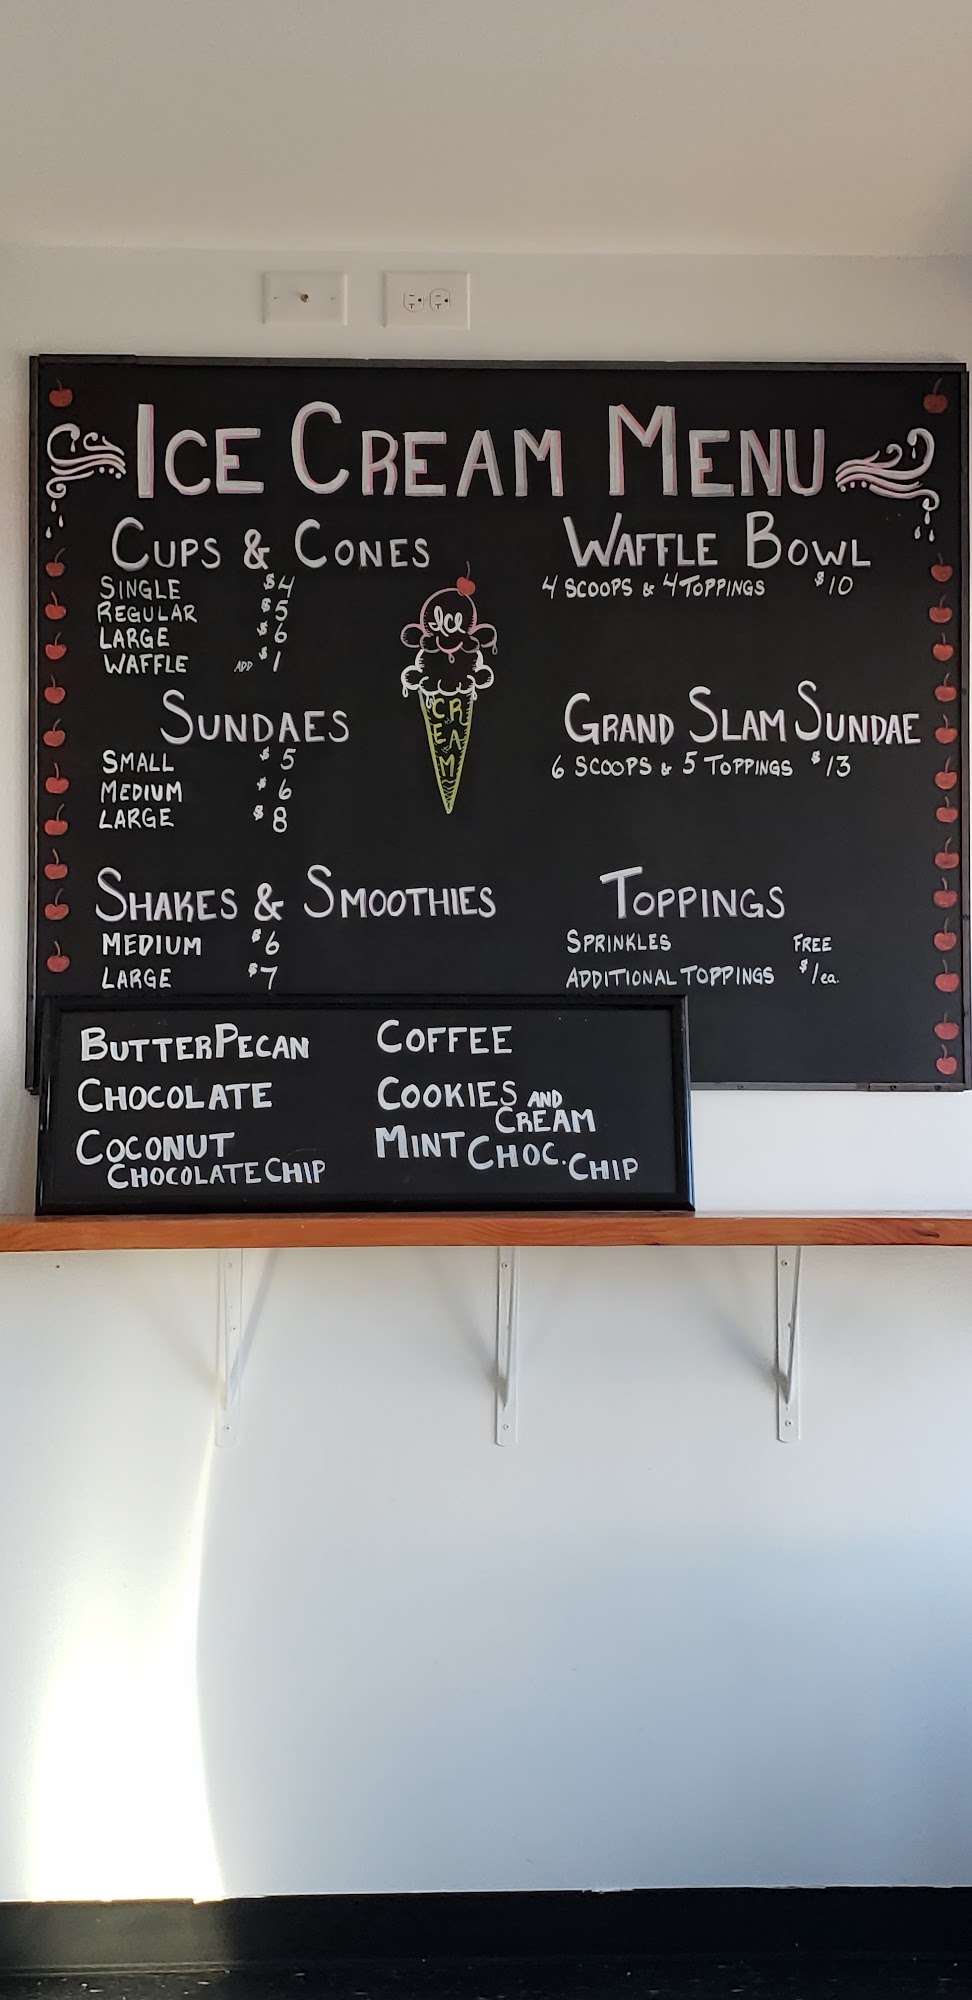 ICE CREAM MENU
CUPS & CONES
SINGLE $4
REGULAR $5
LARGE $6
WAFFLE ADD $1
ICE
CR
EA
M
SUNDAES
SMALL $5
MEDIUM $6
LARGE $8
SHAKES & SMOOTHIES
MEDIUM $6
LARGE $7
WAFFLE BOWL
4 SCOOPS & 4 TOPPINGS $10
GRAND SLAM SUNDAE
6 SCOOPS & 5 TOPPINGS $13
TOPPINGS
SPRINKLES FREE
ADDITIONAL TOPPINGS $1 ea.
BUTTER PECAN
CHOCOLATE
COCONUT
CHOCOLATE CHIP
COFFEE
COOKIES AND
CREAM
MINT CHOC. CHIP